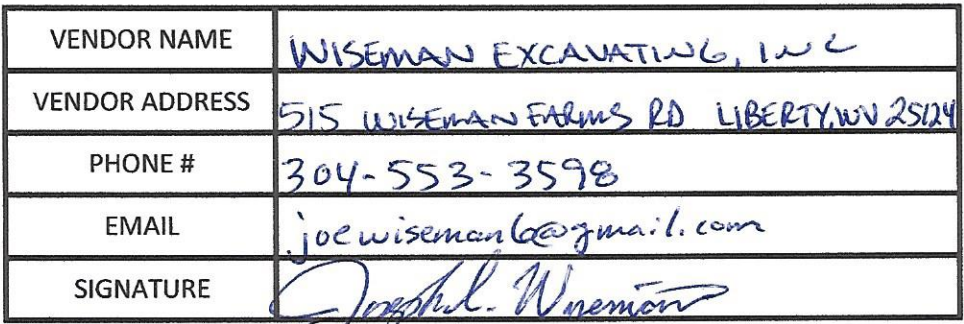 VENDOR NAME WISEMAN EXCAVATING, INC
VENDOR ADDRESS 515 WISEMAN FARMS RD LIBERTY, WV 25124
PHONE # 304-553-3598
EMAIL joewiseman6@gmail.com
SIGNATURE Joseph L. Wiseman